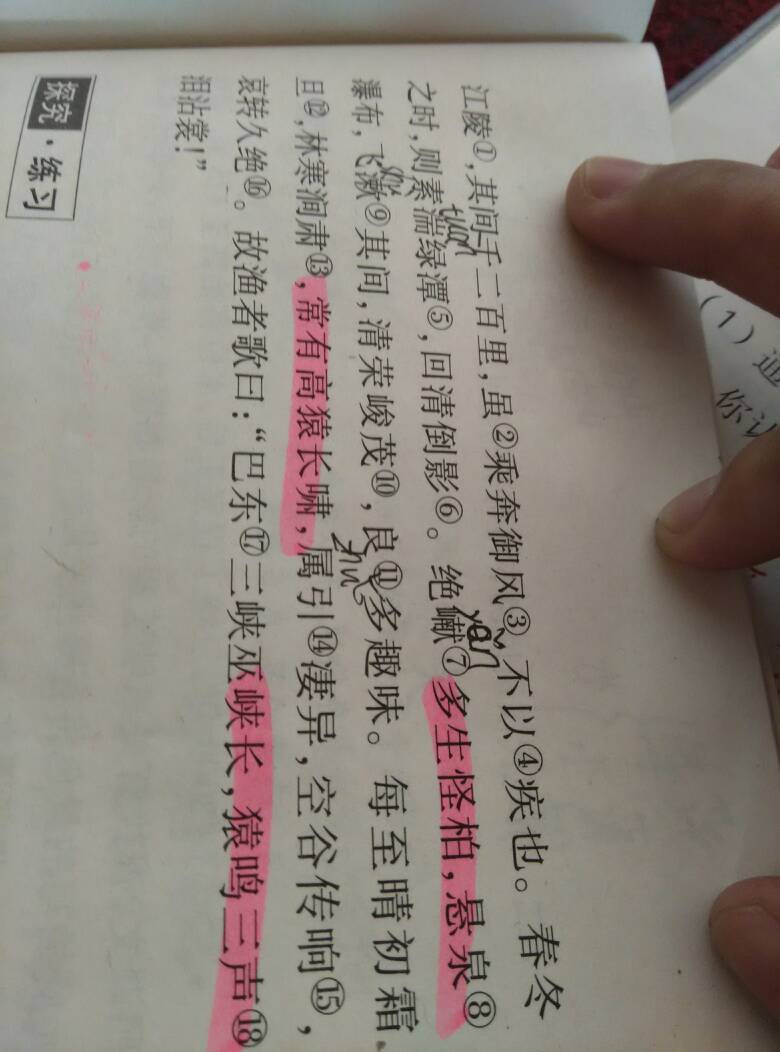 江陵①,其间千二百里,虽②乘奔御风③,不以④疾也。春冬
tuān
之时,则素湍绿潭⑤,回清倒影⑥。绝巘⑦多生怪柏,悬泉⑧
yǎn
瀑布,飞漱⑨其间,清荣峻茂⑩,良⑪多趣味。每至晴初霜
zhǔ
旦⑫,林寒涧肃⑬,常有高猿长啸,属引⑭凄异,空谷传响⑮,
哀转久绝⑯。故渔者歌曰:“巴东⑰三峡巫峡长,猿鸣三声⑱
泪沾裳!”
探究·练习
(1)
你认